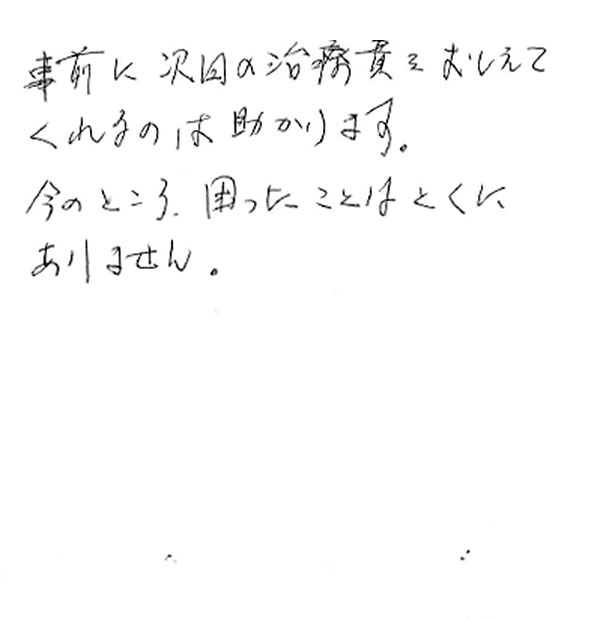 事前に次回の治療費をおしえて
くれるのは助かります。
今のところ、困ったことはとくに
ありません。